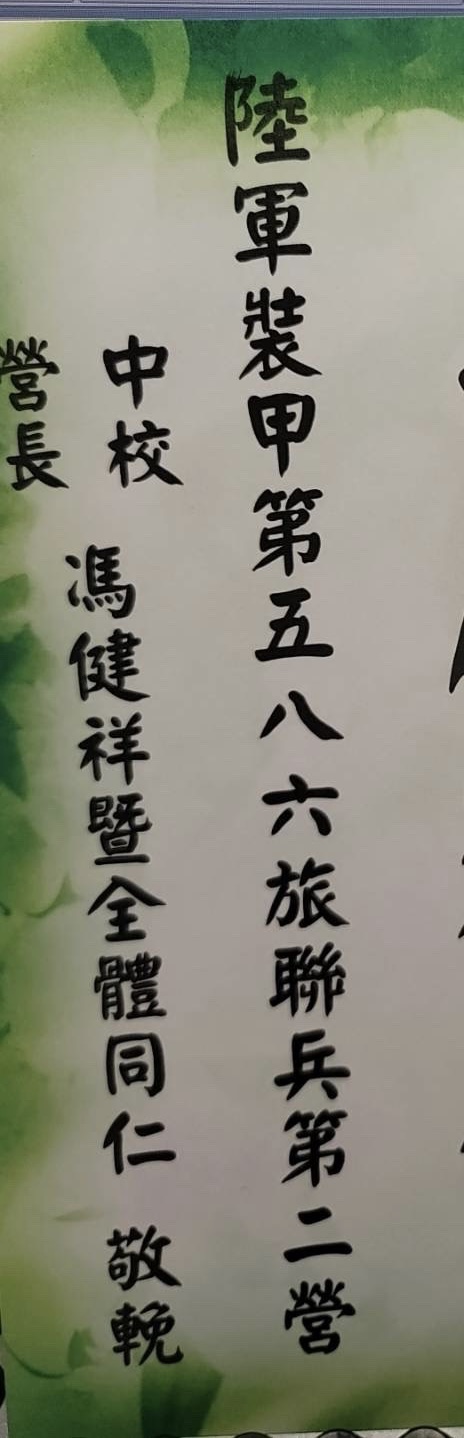 陸軍裝甲第五八六旅聯兵第二營
中校
營長
馮健祥暨全體同仁 敬輓